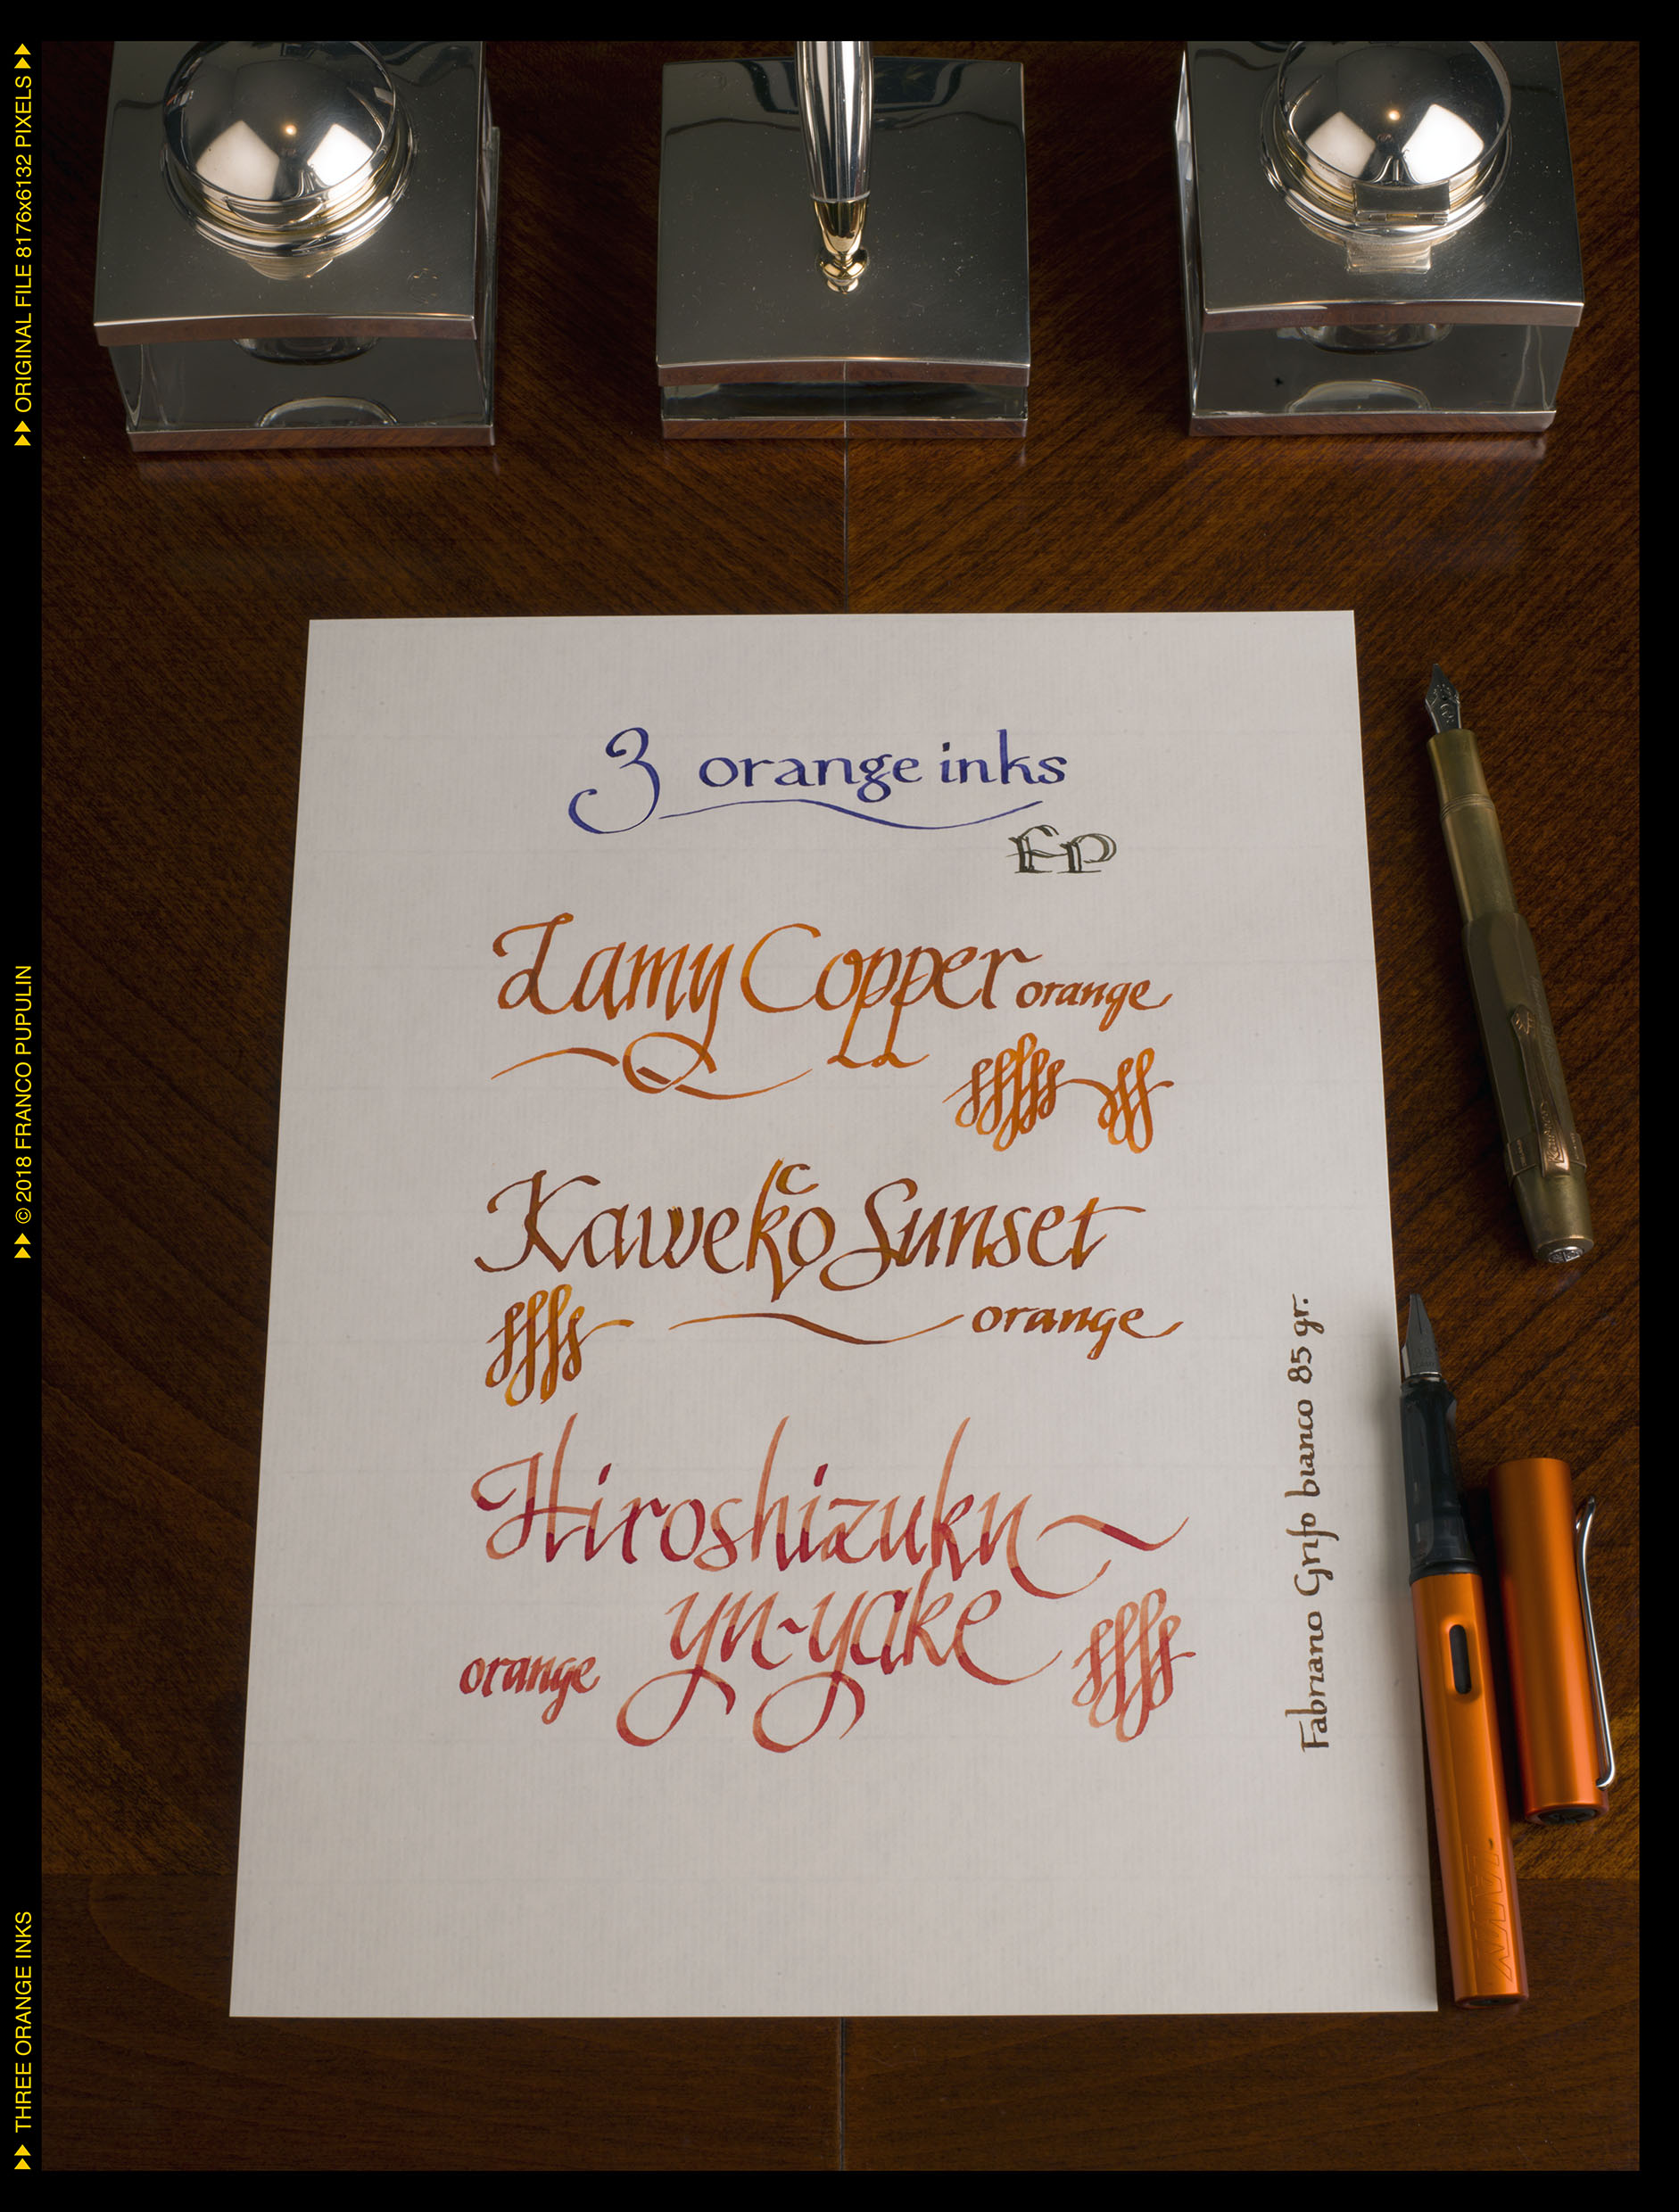 3 orange inks
FP
Lamy Copper orange
c
Kaweko Sunset
orange
Hiroshizuku
yu-yake
orange
Fabriano Grifo bianco 85 gr.
LAMY
Kaweco
ORIGINAL FILE 8176x6132 PIXELS
© 2018 FRANCO PUPULIN
THREE ORANGE INKS